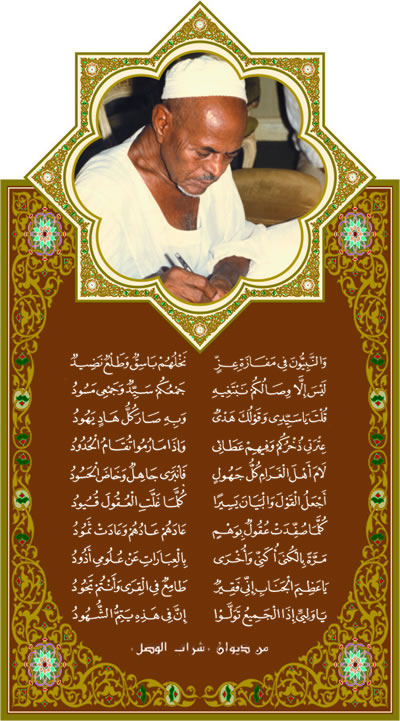 وَالنَّبِيُّونَ فِي مَفَازَةِ عِزٍّ نَخْلُهُمْ بَاسِقٌ وَطَلْعٌ نَضِيدٌ
لَيْسَ إِلَّا وِصَالُكُمْ نَبْتَغِيهِ جَمْعُكُمْ سَيِّدٌ وَجَمْعِي مَسُودُ
قُلْتَ يَا سَيِّدِي وَقَوْلُكَ هَدْيٌ وَبِهِ سَارَ كُلُّ هَادٍ يَهُودُ
عِتْرَتِي ذُخْرُكُمْ وَفِيهِمْ عَطَائِي وَإِذَا مَا رُمُوا تُقَامُ الْحُدُودُ
لَامَ أَهْلَ الْغَرَامِ كُلُّ جَهُولٍ فَانْبَرَى جَاهِلٌ وَخَاضَ الْحَسُودُ
أَجْعَلُ الْقَوْلَ وَالْبَيَانَ يَسِيرًا كُلَّمَا غَلَّتِ الْعُقُولَ قُيُودُ
كُلَّمَا صُفِّدَتْ عُقُولٌ بِوَهْمٍ عَادَهُمْ عَادُهُمْ وَعَادَتْ ثَمُودُ
مَرَّةً بِالْكُنَى أُكَنِّي وَأُخْرَى بِالْعِبَارَاتِ عَنْ عُلُومِي أَذُودُ
يَا عَظِيمَ الْجَنَابِ إِنِّي فَقِيرٌ طَامِعٌ فِي الْقِرَى وَأَنْتُمْ تَجُودُ
يَا وَلِيِّي إِذَا الْجَمِيعُ تَوَلَّوْا إِنَّ فِي هَذِهِ يَتِمُّ الشُّهُودُ
من ديوان «شراب الوصل»